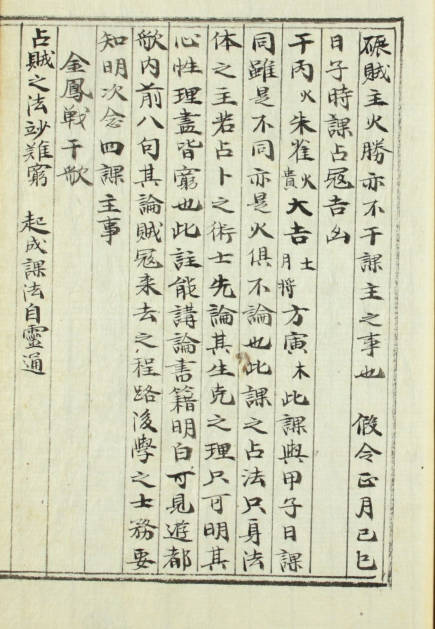 碾賊主火勝亦不干課主之事也 假令正月己巳
日子時課占冦吉凶
干丙火朱雀火貴大吉土月将方寅木此課與甲子日課
同雖是不同亦是火俱不論也此課之占法只身法
体之主若占卜之術士先論其生克之理只可明其
心性理盡皆窮也此註能講論書籍明白可見遊都
歌内前八句其論賊冦来去之程路後學之士務要
知明次念四課主事
金鳳戦干歌
占賊之法玅難窮 起成課法自靈通